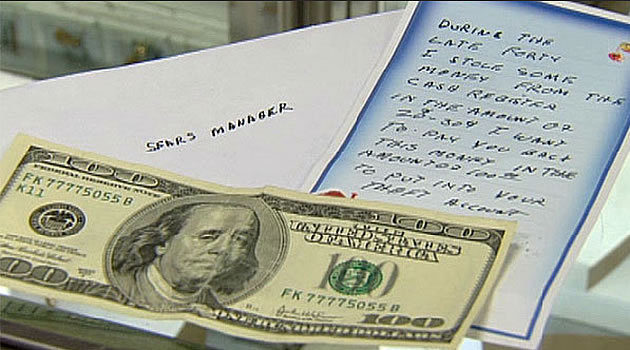 DURING THE
LATE FORTY
I STOLE SOME
MONEY FROM THE
CASH REGISTER
IN THE AMOUNT OF
20-30$ I WANT
TO PAY YOU BACK
THIS MONEY IN THE
AMOUNT OF 100$
TO PUT INTO YOUR
THEFT ACCOUNT
SEARS MANAGER
100
FK 77775055 B
K11
100
THE UNITED STATES
OF AMERICA
100
FK 77775055 B
100
100